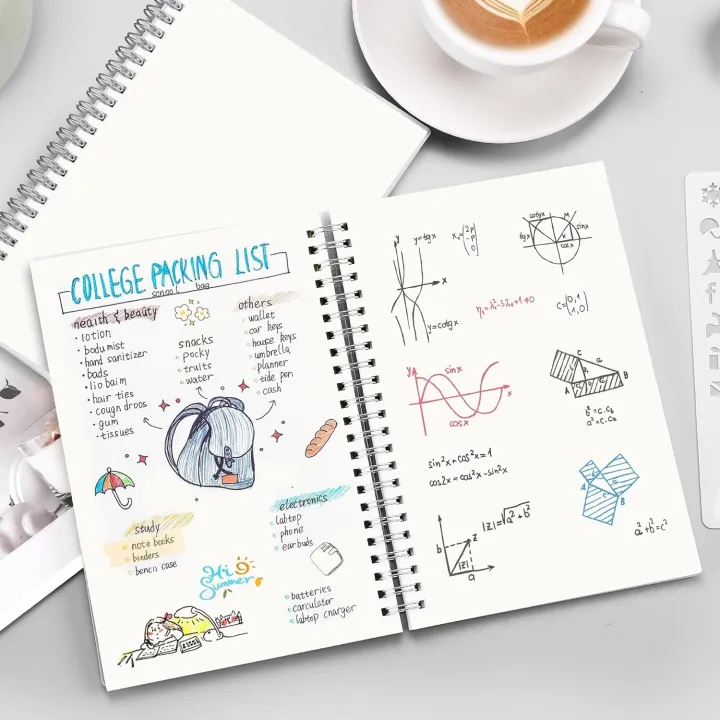 COLLEGE PACKING LIST
school bag
health & beauty
lotion
body mist
hand sanitizer
bads
lio baim
hair ties
cough droos
gum
tissues
snacks
pocky
truits
water
others
wallet
car keys
hause keys
umbrella
planner
tide pan
cash
study
note books
binders
bencil case
electronics
labtop
phone
earbuds
batteries
carculator
labtop charger
Hi
Summer
y
y=tgx
x
y=cotgx
cotgx
M
tgx
sinx
x
cosx
y
sinx
x
cosx
C
a
A
B
b²=c.c_b
a²=c.c_a
sin²x+cos²x=1
cos2x=cos²x-sin²x
|z|=√a²+b²
b
z
|z|
a
A
c
B
a²+b²=c²